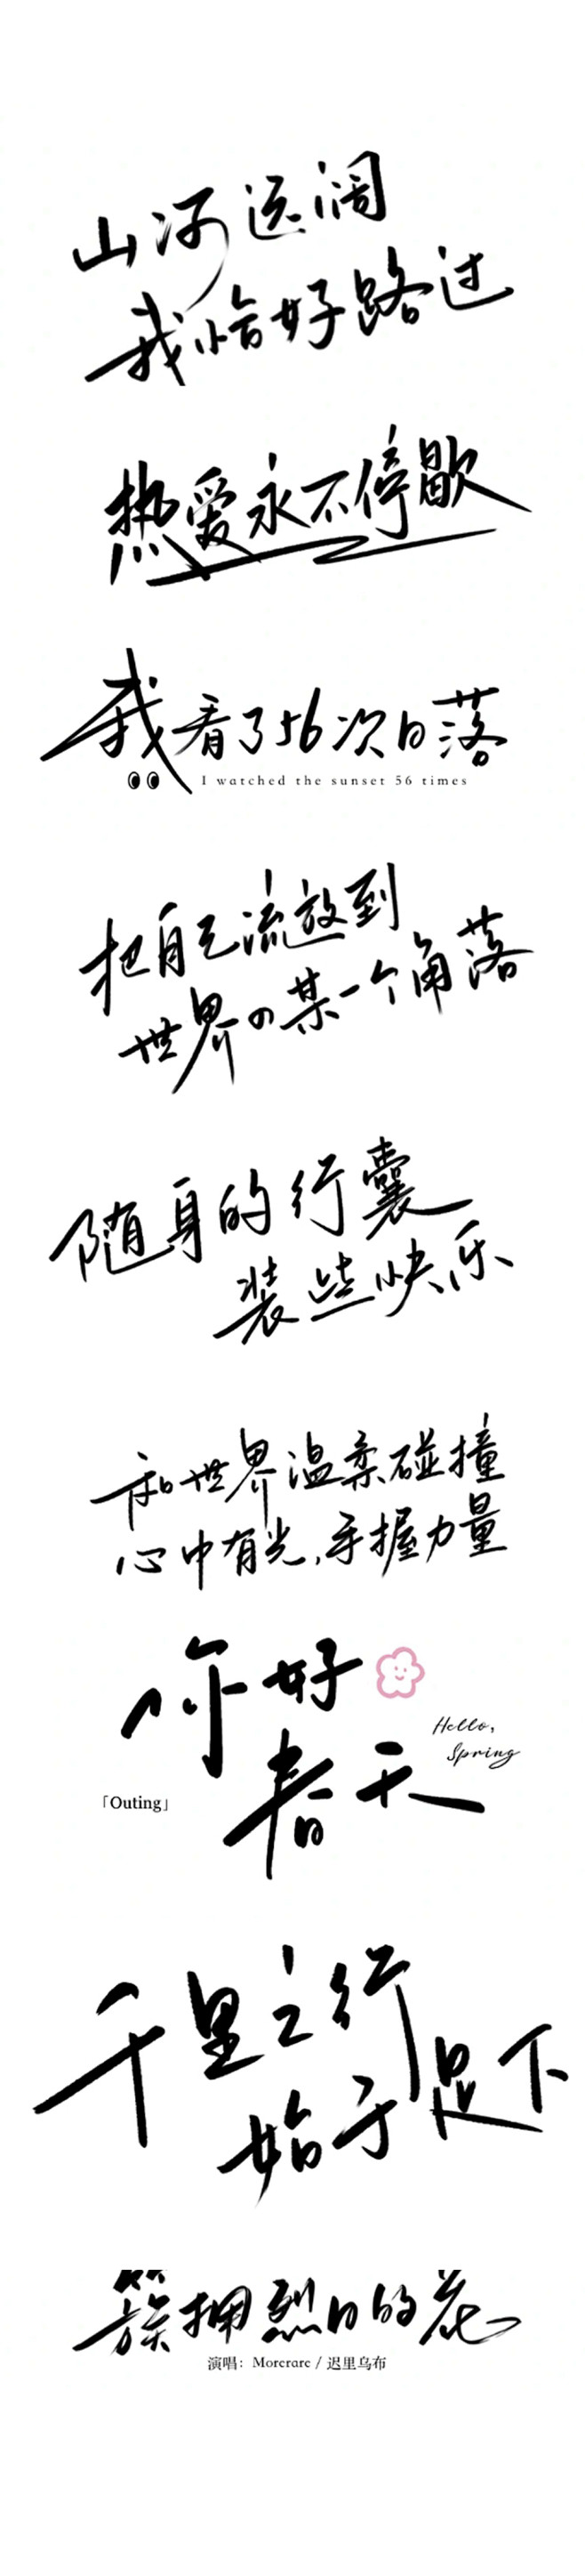 山河远阔
我恰好路过
热爱永不停歇
我看了56次日落
I watched the sunset 56 times
把自己流放到
世界の某一个角落
随身的行囊
装些快乐
和世界温柔碰撞
心中有光,手握力量
你好
Hello,
Spring
春天
「Outing」
千里之行
始于足下
簇拥烈日的花
演唱：Morerare / 迟里乌布